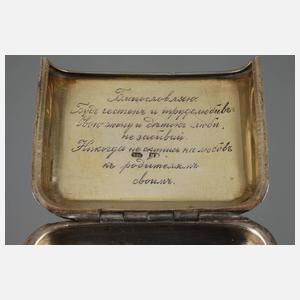 Благословляю
Будь честенъ и трудолюбивъ
Твою жену и дѣтокъ люби,
не забывай
Никогда не скупись на любовь
къ родителямъ
своимъ.